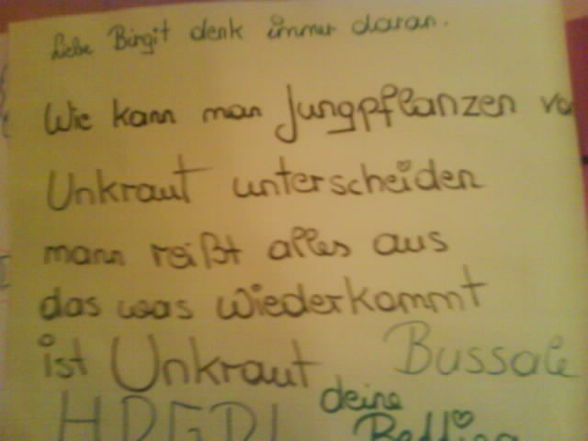 Liebe Birgit denk immer daran.
Wie kann man Jungpflanzen
Unkraut unterscheiden
mann reißt alles aus
das was wiederkommt
ist Unkraut
Bussale
deine
HDGDL